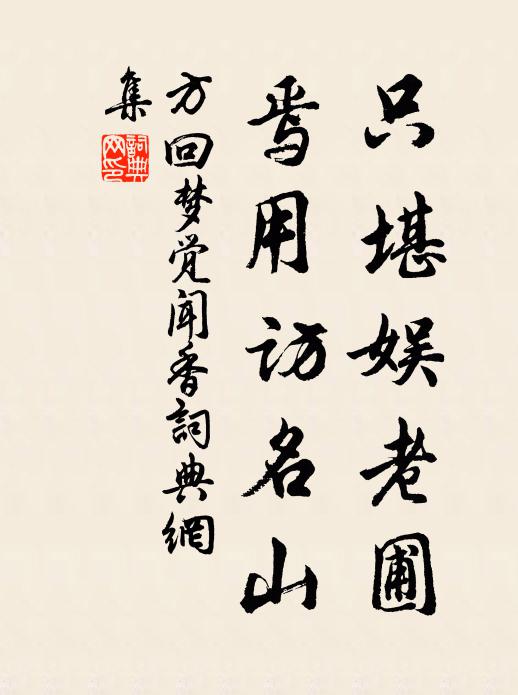 只堪娱老圃
焉用访名山
方回梦觉闻香詞典網
集
詞典
网印